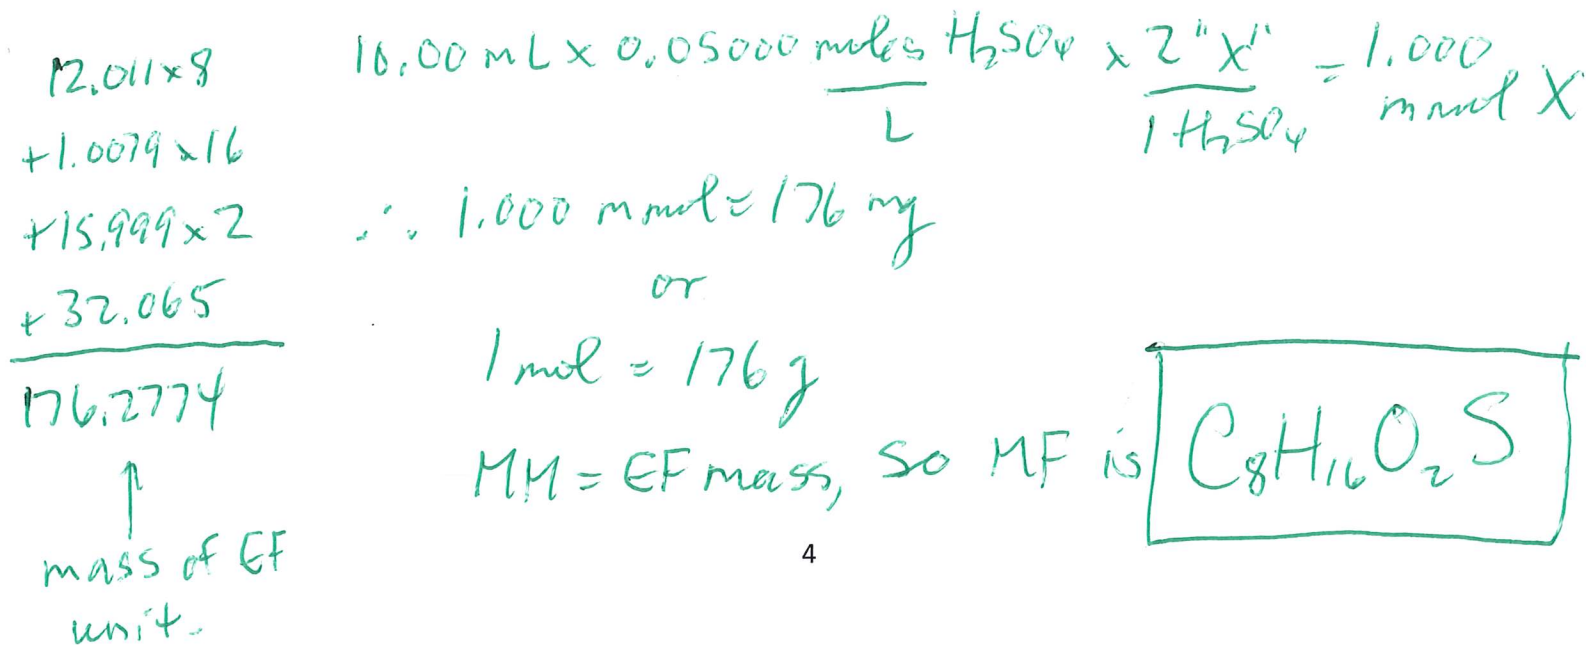 12.011x8
+1.0079x16
+15.999x2
+32.065
176.2774
↑
mass of EF
unit.
10.00 mL x 0.05000 moles H₂SO₄ / L x 2 "X" / 1 H₂SO₄ = 1.000 mmol X
∴ 1.000 mmol = 176 mg
or
1 mol = 176 g
MM = EF mass, so MF is C₈H₁₆O₂S
4